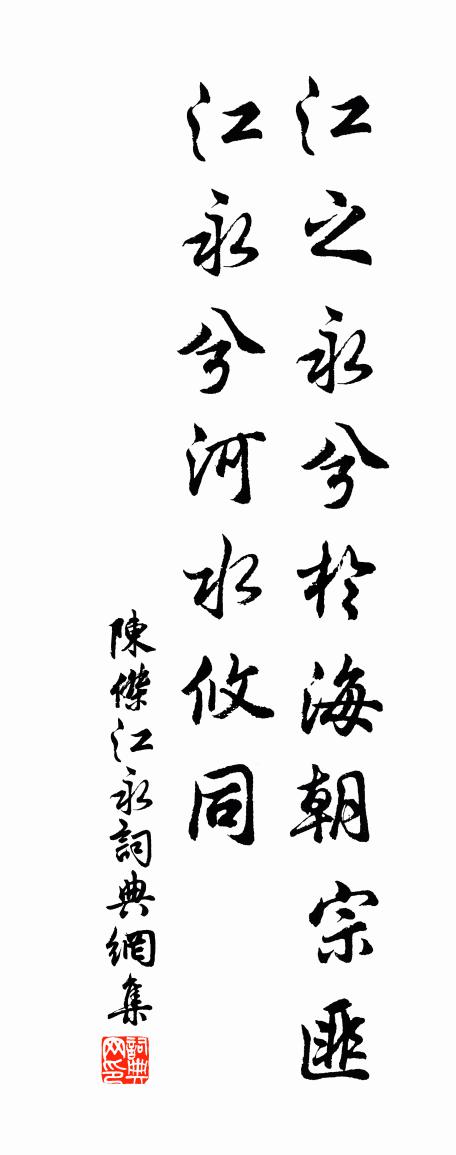 江之永兮於海朝宗匪
江永兮河水攸同
陳傑江永詞典網集
詞典网印